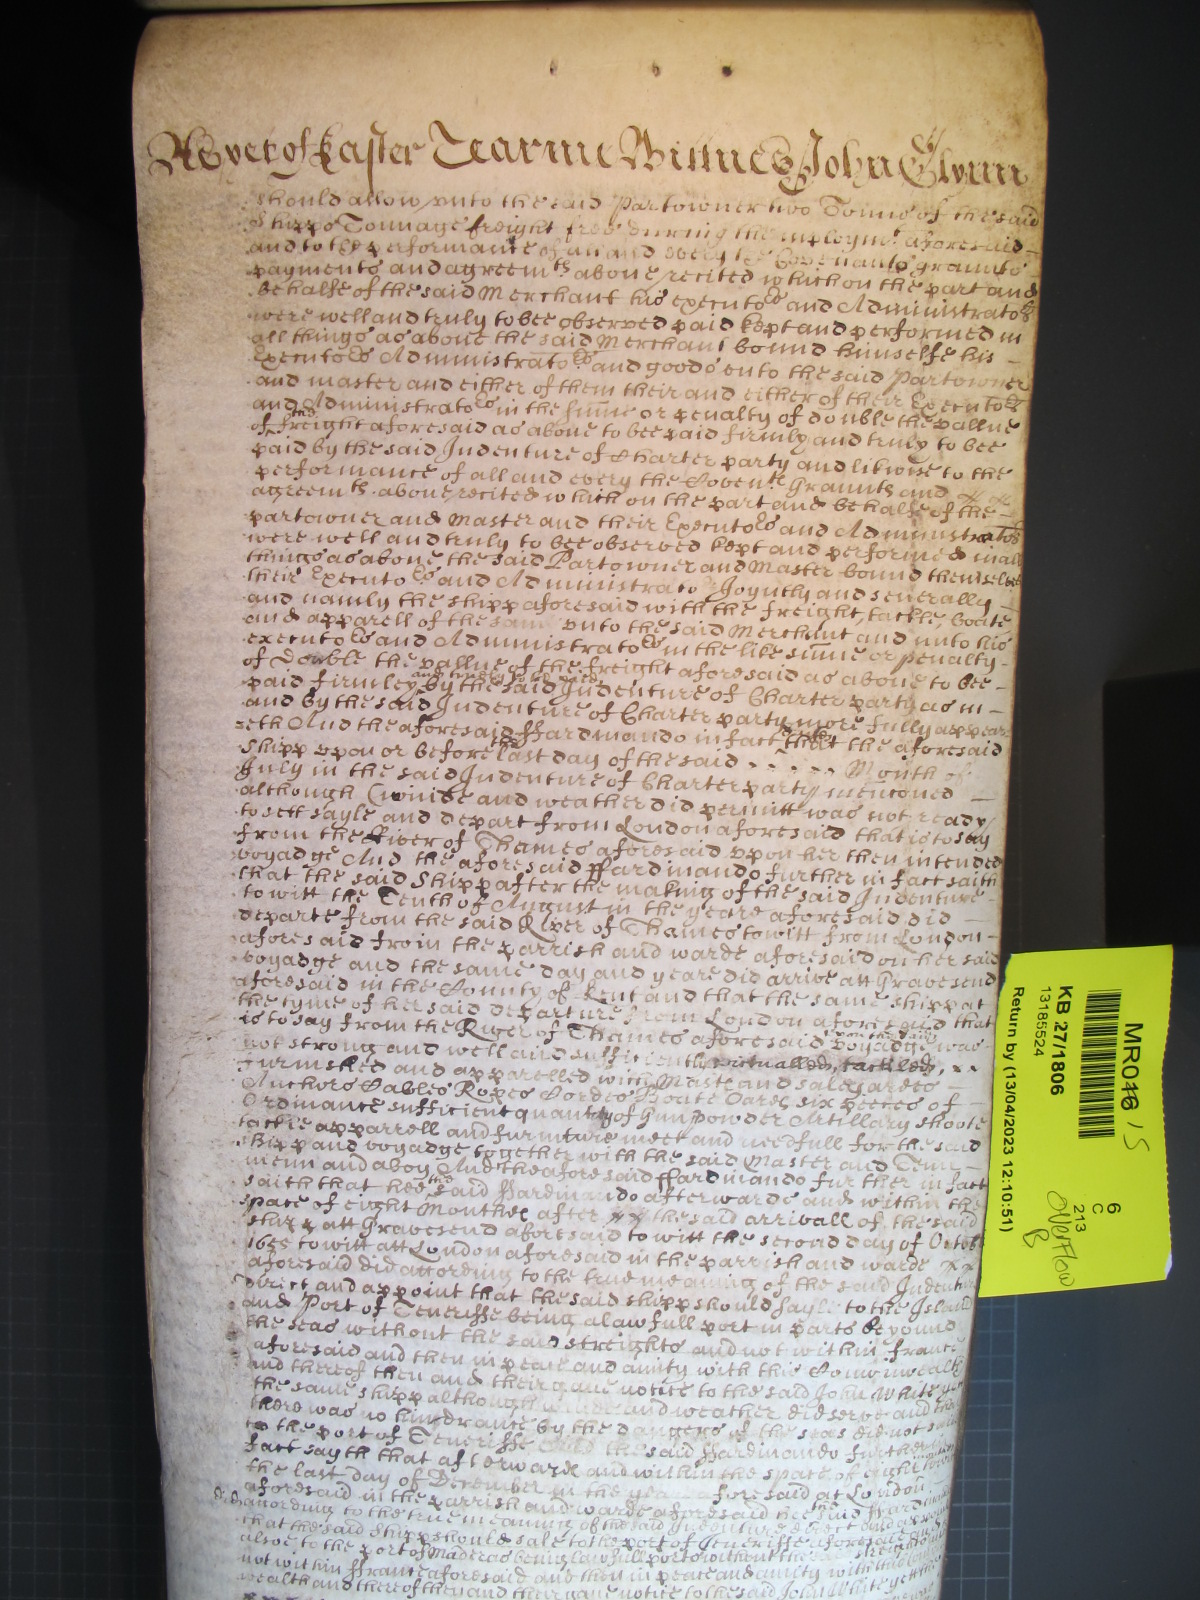 As yet of Easter Tearme Wittnes John Glynn
should allow unto the said Partowner two Tonns of the said
Shipps Tonnage freight free during the imploymt aforesaid
and to the performance of all and every the Covenants graunts
payments and agreemts above recited which on the part and
behalfe of the said Merchant his executors and Administrators
were well and truly to bee observed paid kept and performed in
all things as above the said Merchant bound himselfe his
Executors Administrators and goods unto the said Partowner
and master and either of them their and either of their Executors
and Administrators in the sume or penalty of double the vallue
of the freight aforesaid as above to bee paid firmly and truly to bee
paid by the said Indenture of Charter party and likwise to the
performance of all and every the Covents Graunts and
agreemts above recited which on the part and behalfe of the
partowner and Master and their Executors and Administrators
were well and truly to bee observed kept and performed in all
things as above the said Partowner and Master bound themselves
their Executors and Administrators Joyntly and severally
and namly the shipp aforesaid with the freight, tackle, boate
and apparell of the same unto the said Merchant and unto his
executors and Administrators in the like sume or penalty
of double the vallue of the freight aforesaid as above to bee
paid firmley and truely to be paid by the said Indenture of Charter party as in
and by the said Indenture of Charter party more fully appear
eth And the aforesaid Ffardinando in fact that the aforesaid
Shipp upon or before the last day of the said Month of
July in the said Indenture of Charter party mentioned
although winde and weather did permitt was not ready
to sett sayle and depart from London aforesaid that is to say
from the River of Thames aforesaid upon her then intended
voyadge And the aforesaid Ffardinando further in fact saith
that the said Shipp after the making of the said Indenture
to witt the Tenth of August in the yeare aforesaid did
departe from the said River of Thames to witt from London
aforesaid from the parrish and warde aforesaid on her said
voyadge and the same day and yeare did arrive att Gravesend
aforesaid in the County of Kent and that the same shipp at
the tyme of her said departure from London aforesaid that
is to say from the River of Thames aforesaid upon the said voyadge was
not strong and well and sufficiently victualled, tackled,
furnished and apparelled with Maste and saile yardes
Anchors Cables Ropes Cordes Boate Oares six peeces of
Ordinance sufficient quantity of Gunpowder Artillary shoote
tackle apparrell and furniture meet and needfull for the said
Shipp and voyadge together with the said Master and Tenn
menn and a boy And the aforesaid Ffardinando further in fact
saith that hee the said Ffardinando afterwards and within the
space of eight Monthes after the said arrivall of the said
shipp att Gravesend aforesaid to witt the second day of Octob
1655 to witt att London aforesaid in the parrish and warde
aforesaid did according to the true meaning of the said Indenture
Direct and appoint that the said shipp should sayle to the Island
and Port of Teneriffe being a lawfull port in parts beyound
the seas without the said streights and not within France
aforesaid and then in peace and amity with this Comonwealth
and thereof then and their gave notice to the said John White yett
the same shipp although winde and weather did serve and
there was no hindrance by the dangers of the seas did not saile
to the port of Teneriffe And the said Ffardinando further in
fact sayth that afterwards and within the space of eight
the last day of December in the yeare aforesaid at London
aforesaid in the parrish and warde aforesaid hee the said Ffardinando
did according to the true meaning of the said Indenture direct and appoint
that the said Shipp should saile to the port of Teneriffe aforesaid
alsoe to the port of Maderas being lawfull ports without the said streights
not within Ffrance aforesaid and then in peace and amity with this Comon
wealth and thereof then and their gave notice to the said John White yett
MR016 15
KB 27/1806
13185524
Return by (13/04/2023 12:10:51)
6
C
213
overflow
B